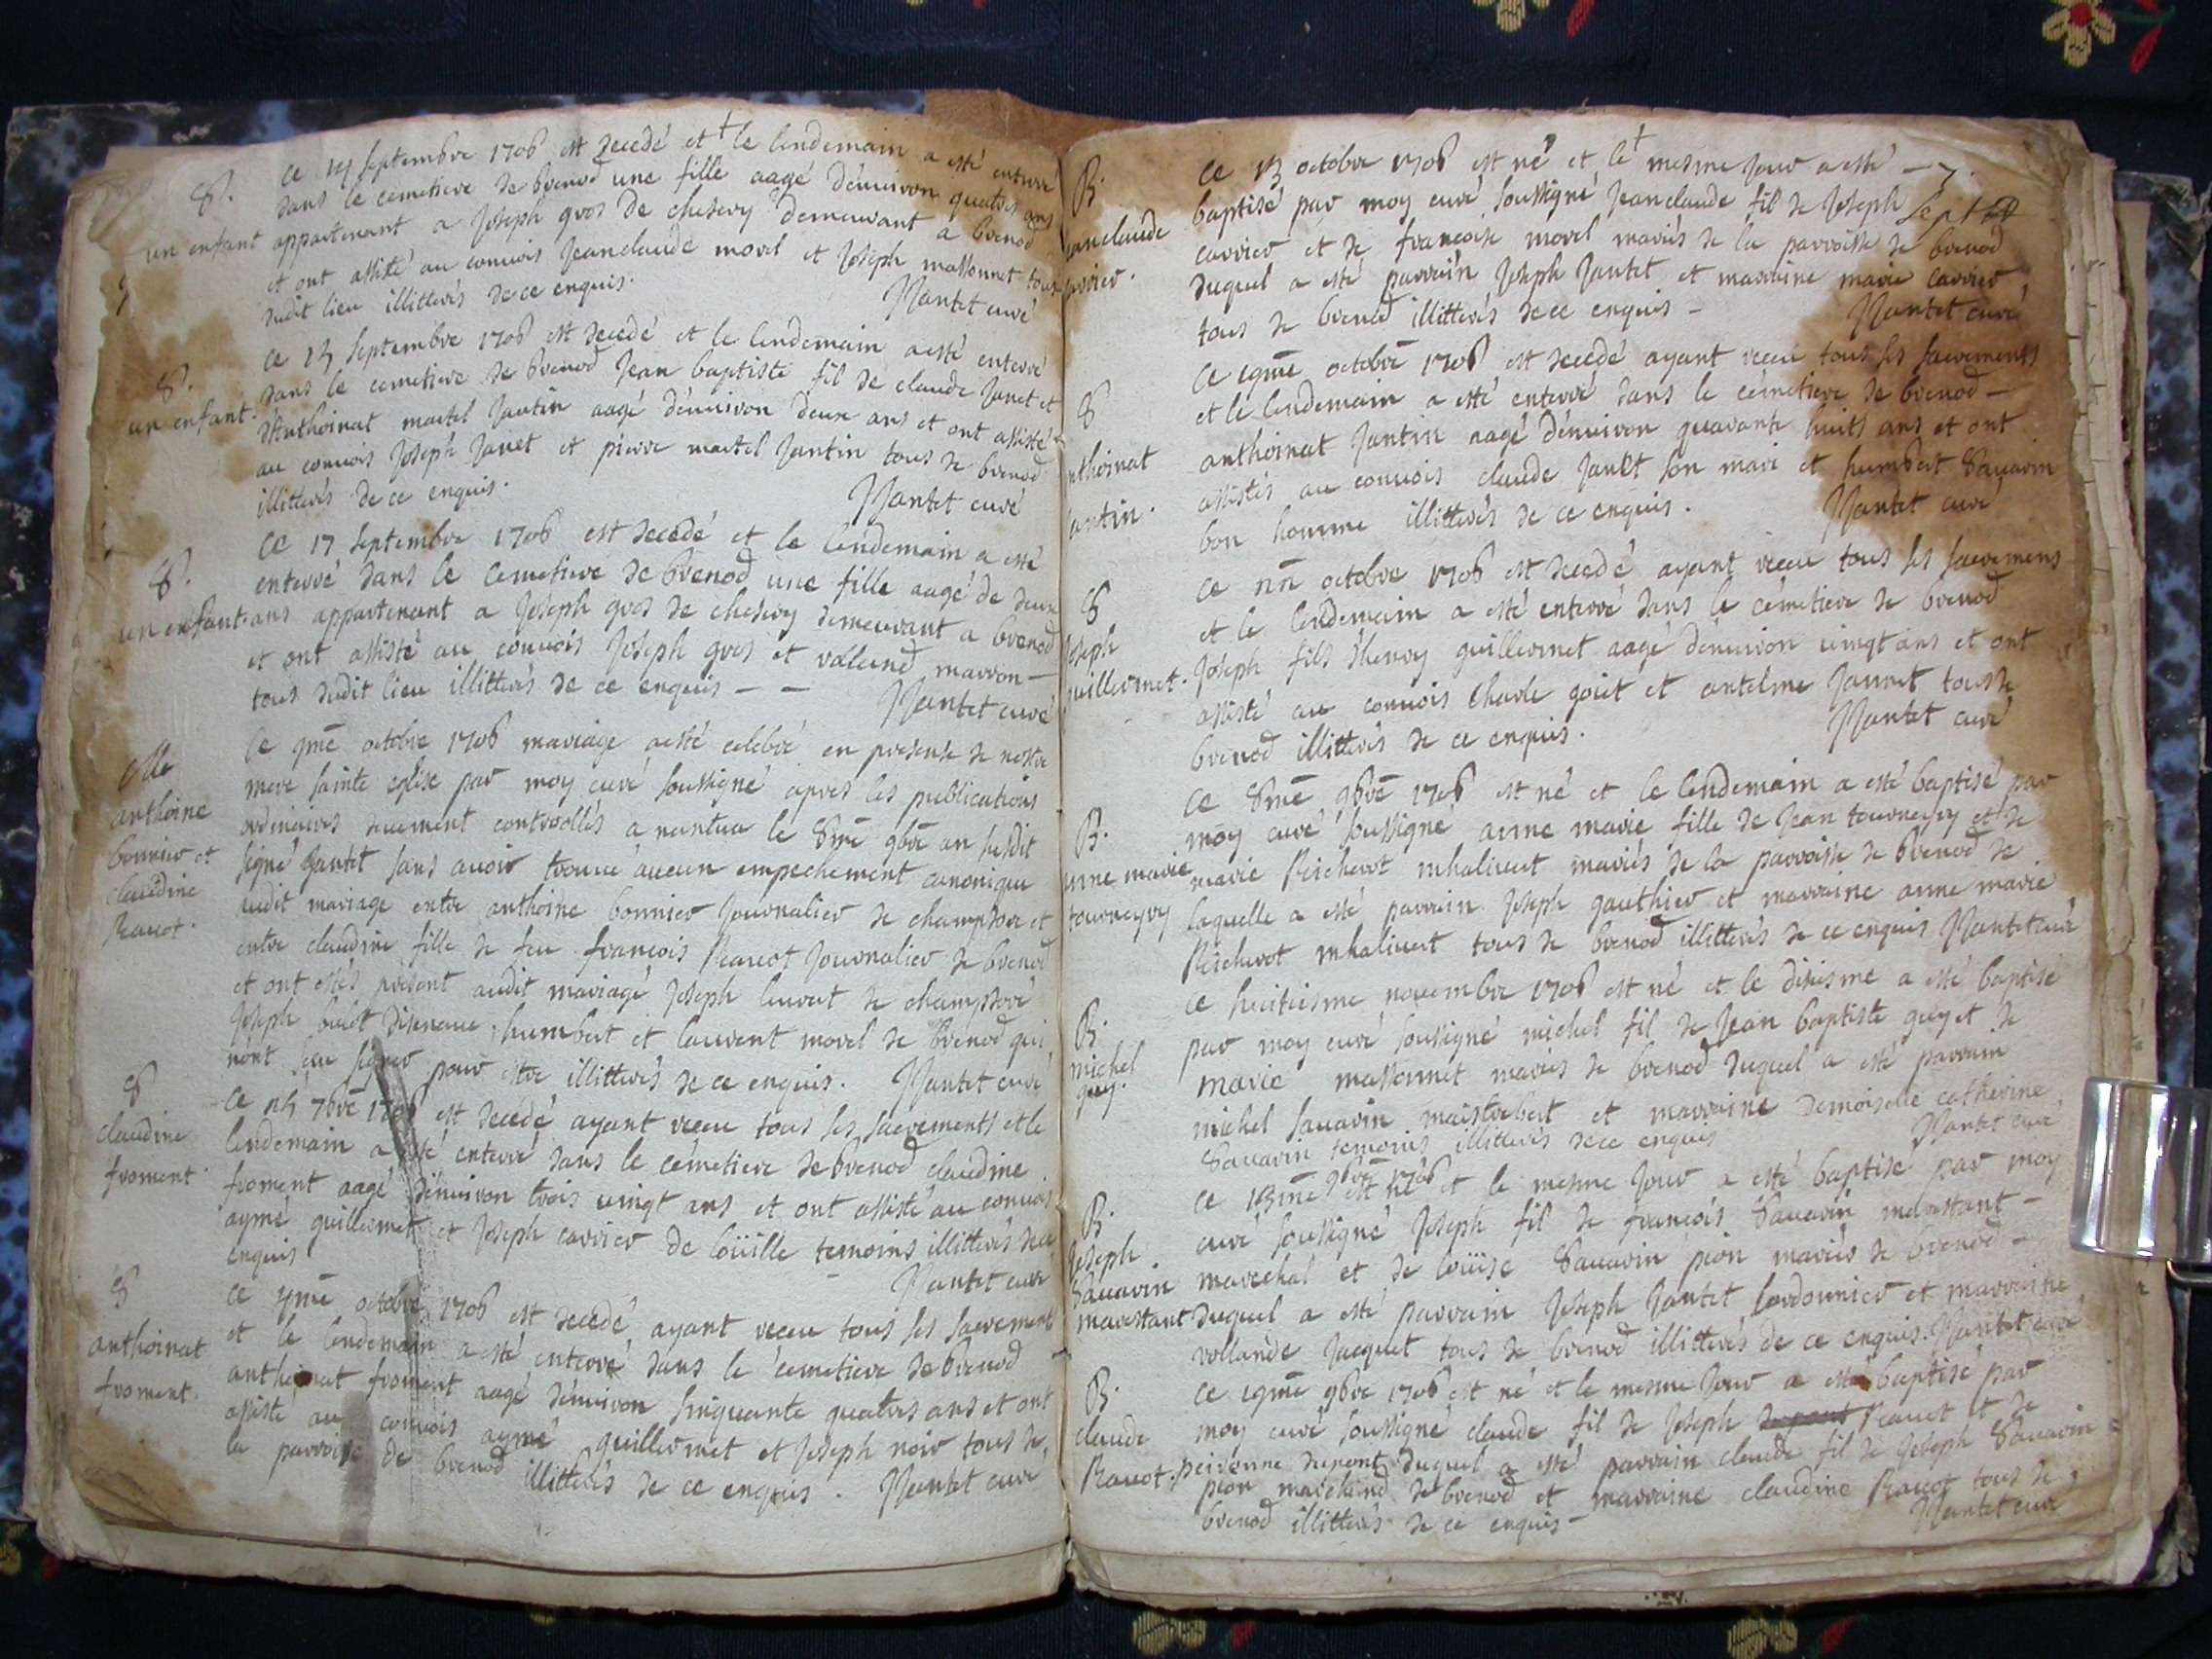 S.
un enfant
ce 14 septembre 1706 est decedé et † le lendemain a esté enterré
dans le cemetiere de brenod une fille aagé d'enuiron quatres ans
appartenant a Joseph gros de chesery demeurant a brenod
et ont assisté au conuois Jeanclaude morel et Joseph massonnet tous
dudit lieu illitterés de ce enquis.
Nantet curé
S.
un enfant.
ce 13 septembre 1706 est decedé et le lendemain a esté enterré
dans le cemetiere de brenod Jean baptiste fil de claude Janet et
d'Anthoinat martel Jantin aagé d'enuiron deux ans et ont assisté
au conuois Joseph Janet et pierre martel Jantin tous de brenod
illitterés de ce enquis.
Nantet curé
S.
un enfant.
ce 17 septembre 1706 est decedé et le lendemain a esté
enterré dans le cemetiere de brenod une fille aagé de deux
ans appartenant a Joseph gros de chesery demeurant a brenod
et ont assisté au conuois Joseph gros et rolland marron —
tous dudit lieu illitterés de ce enquis — —
Nantet curé
anthoine
bonnier et
claudine
Rauot.
ce octobre 1706 mariage a esté celebré en presense de nostre
mere sainte eglise par moy curé soussigné apres les publications
ordinaires deuement controollés a nantua le 8me 9bre an susdit
signé Jantet sans auoir trouué aucun empechement canonique
audit mariage entre anthoine bonnier Journalier de champdor et
entre claudine fille de feu francois Rauot Journalier de brenod
et ont estés present audit mariage Joseph de champdore
Joseph humbert et laurent morel de brenod qui
nont sceu signer pour estre illitterés de ce enquis. Nantet curé
S
claudine
froment
ce 7bre 1706 est decedé ayant receu tous ses sacrements et le
lendemain a esté enterré dans le cémetiere de brenod claudine
froment aagé d'enuiron trois uingt ans et ont assisté au conuois
aymé guillermet et Joseph carrier de loüille temoins illitterés de ce
enquis
Nantet curé
S
anthoinat
froment.
ce octobre 1706 est decedé ayant receu tous ses sacrement
et le lendemain a esté enterré dans le cemetiere de brenod
anthoinat froment aagé d'enuiron sinquante quatres ans et ont
assiste au conuois aymé guillermet et Joseph noir tous de
la parroise de brenod illitterés de ce enquis. Nantet curé
B.
Jeanclaude
carrier.
ce 13 octobre 1706 est né et le † mesme Jour a esté —
baptisé par moy curé soussigné Jeanclaude fil de Joseph
carrier et de francoise morel mariés de la parroisse de brenod
duquel a esté parrain Joseph Jantet et marraine marie carrier
tous de brenod illitterés de ce enquis —
Nantet curé
S
anthoinat
Jantin.
ce octobre 1706 est decedé ayant receu tous ses sacrements
et le lendemain a esté enterré dans le cémetiere de brenod —
anthoinat Jantin aagé d'enuiron quarante huits ans et ont
assistés au conuois claude Janet son mari et humbert Sauarin
bon homme illitterés de ce enquis.
Nantet curé
S
Joseph
guillermet.
ce octobre 1706 est decedé ayant receu tous ses sacremens
et le lendemain a esté enterré dans le cémetiere de brenod
Joseph fils d'henry guillermet aagé d'enuiron uingt ans et ont
assisté au conuois Charle goüet et antelme Jannet tous de
brenod illitterés de ce enquis.
Nantet curé
B.
anne marie
tournepry
ce 8me 9bre 1706 est né et le lendemain a esté baptisé par
moy curé soussigné anne marie fille de Jean et de
marie mariés de la parroisse de brenod de
laquelle a esté parrain Joseph gauthier et marraine anne marie
tous de brenod illitterés de ce enquis Nantet curé
B.
michel
guy.
ce huitiesme nouembre 1706 est né et le disiesme a esté baptisé
par moy curé soussigné michel fil de Jean baptiste guy et de
marie massonnet mariés de brenod duquel a esté parrain
michel sauarin et marraine demoiselle catherine
Sauarin temoins illitterés de ce enquis
Nantet curé
B.
Joseph
Sauarin
marestant
ce 13me 9bre 1706 est né et le mesme Jour a esté baptisé par moy
curé soussigné Joseph fil de francois Sauarin marestant —
marechal et de loüise Sauarin pion mariés de brenod —
duquel a esté parrain Joseph Jantet cordonnier et marraine
rollande Jacquet tous de brenod illitterés de ce enquis. Nantet curé
B.
claude
Rauot.
ce 9bre 1706 est né et le mesme Jour a esté baptisé par
moy curé soussigné claude fil de Joseph Rauot et de
peronne dupont duquel a esté parrain claude fil de Joseph Sauarin
pion marchand de brenod et marraine claudine Rauot tous de
brenod illitterés de ce enquis —
Nantet curé